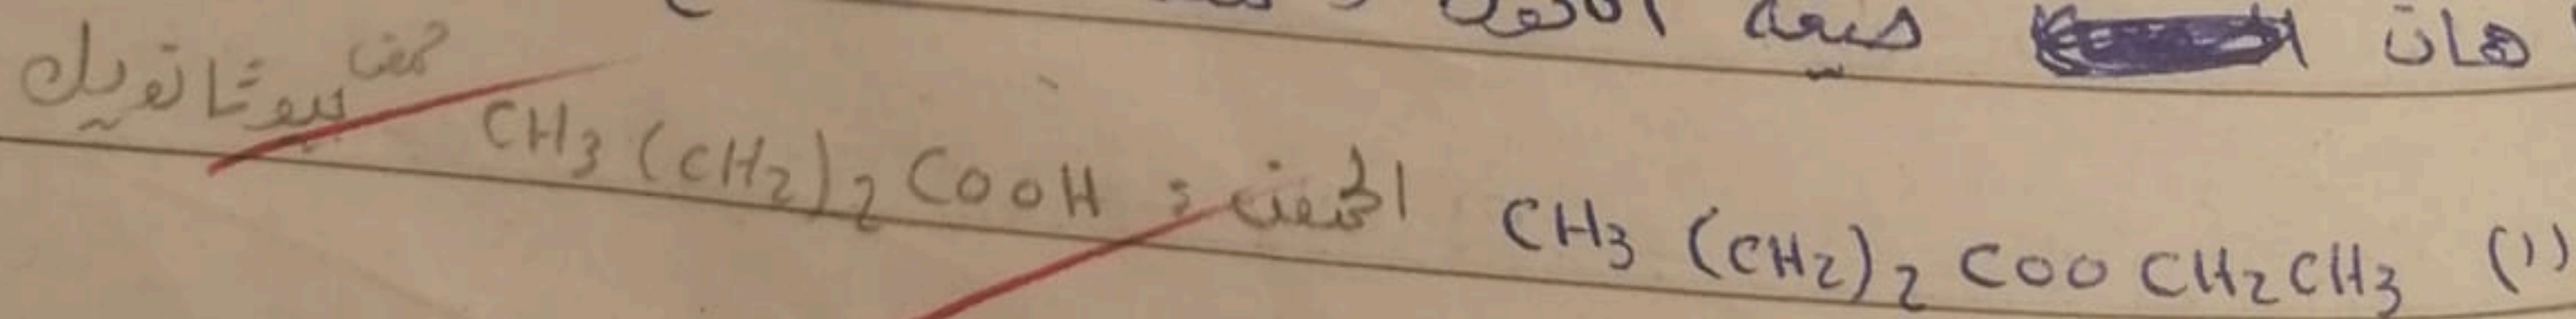 هات صيغة
(١) CH3 (CH2)2 COO CH2CH3 الحمض : CH3 (CH2)2 COOH حمض بيوتانويك